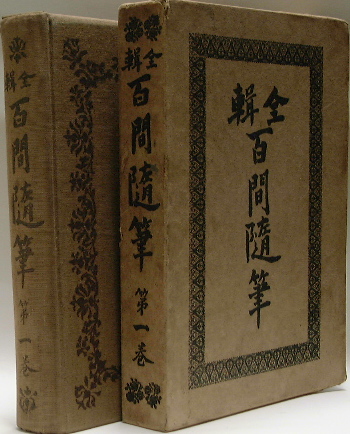 全輯
百間隨筆
第一卷
全輯
百間隨筆
第一卷
全輯
百間隨筆